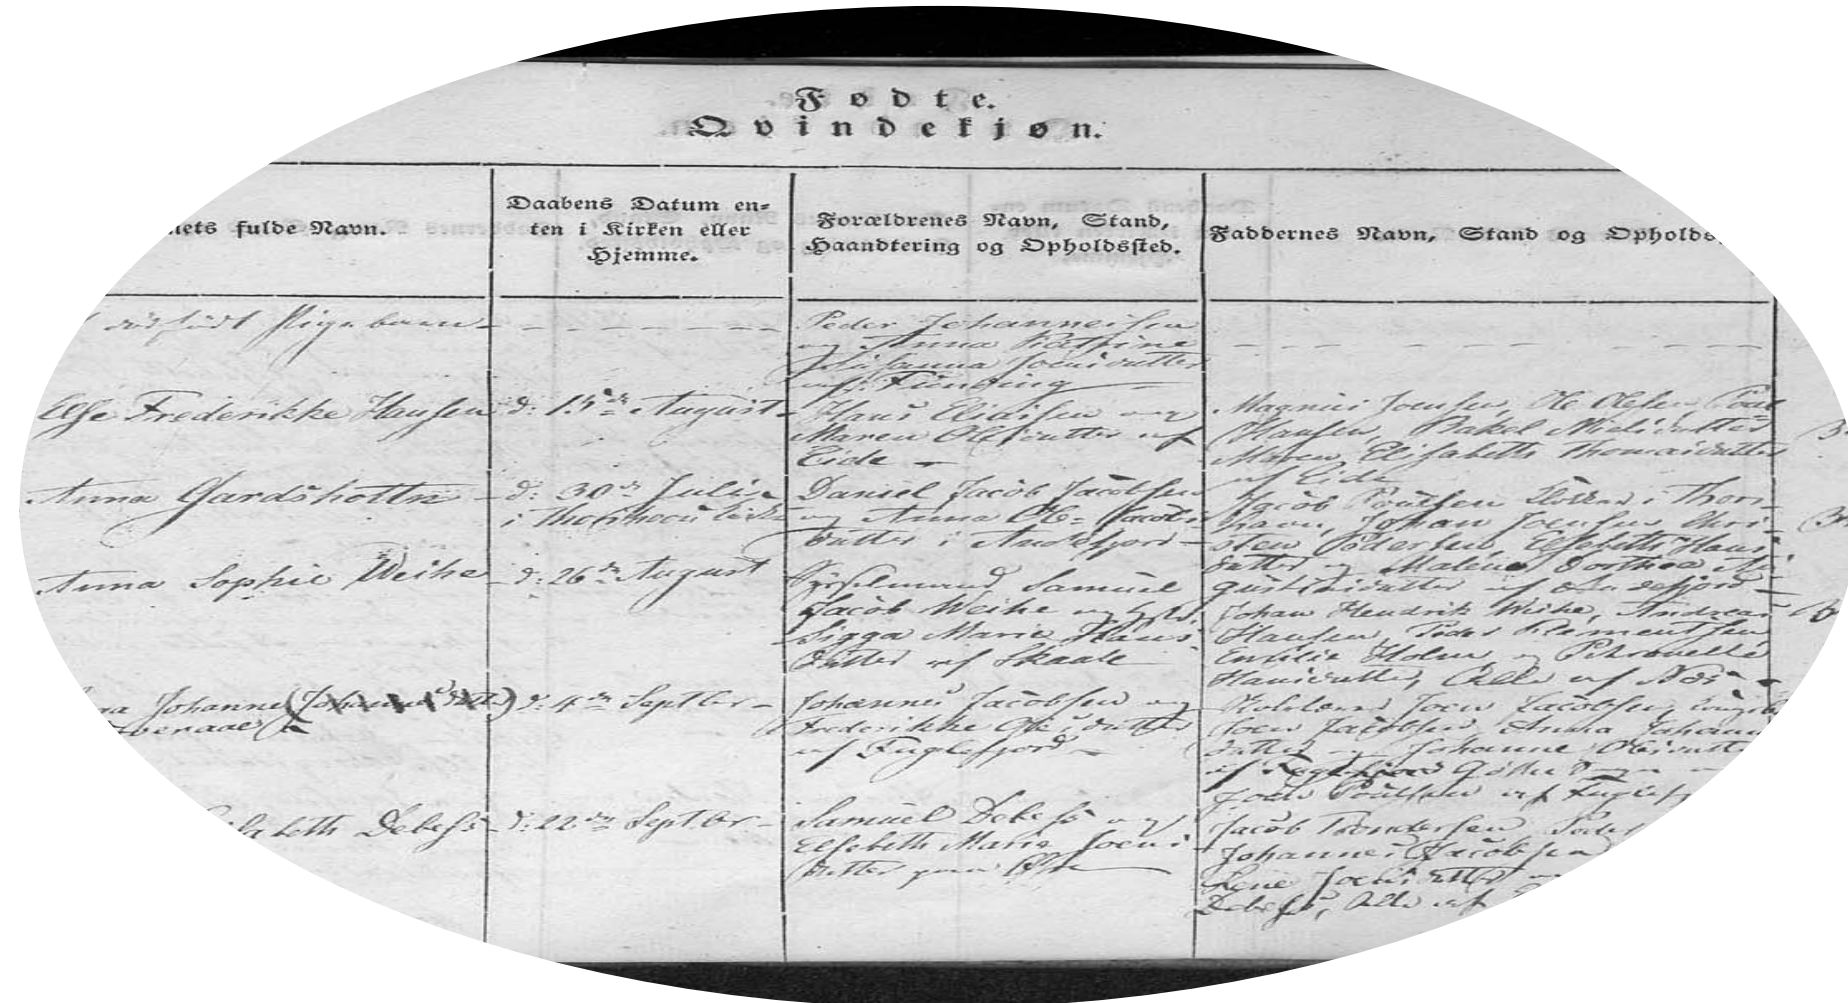 Fødte.
Qvindekjøn.
nets fulde Navn.
Daabens Datum en-
ten i Kirken eller
Hjemme.
Forældrenes Navn, Stand,
Haandtering og Opholdssted.
Faddernes Navn, Stand og Opholds
dødfødt Pigebarn
Peder Johannesen
og Anna Kathrine
Susanna Joensdatter
af Funding
Else Frederikke Hansen
d: 15de August
Hans Eliasen og
Maren Olesdatter af
Eide
Magnus Joensen, Ole Olesen, Poul
Hansen, Rakel Nielsdatter
Maren Elisabeth Thomasdatter
af Eide
Anna Gardshottn
d: 30te Juli
i Thorshavn Kirke
Daniel Jacob Jacobsen
og Anna Ole Jacobs
datter i Andefjord
Jacob Poulsen i Thors
havn, Johan Joensen Chri-
sten Pedersen, Elsebeth Hans
datter og Malene Dorthea Au
gustinusdatter af Andefjord
Anna Sophie Weihe
d: 26de August
Sysselmand Samuel
Jacob Weihe og
Sigga Marie Hans
datter af Skaale
Johan Hendrik Weihe, Andreas
Hansen, Peder Klementsen
Emilie Holm og Petronelle
Hansdatter, Alle af Næs
na Johanne (Johannesdatter)
d: 4de Septbr
Johannes Jacobsen og
Frederikke Olesdatter
af Fuglefjord
Joen Jacobsen,
Joen Jacobsen, Anna Johann
datter og Johanne Olesdatt
af
Joen Poulsen af Fuglef
Elsebeth Debess
d: 22de Septbr
Samuel Debess og
Elsebeth Marie Joens
datter paa
Jacob Trondersen Peder
Johannes Jacobsen
Lene Joensdatter
Debess, Alle af